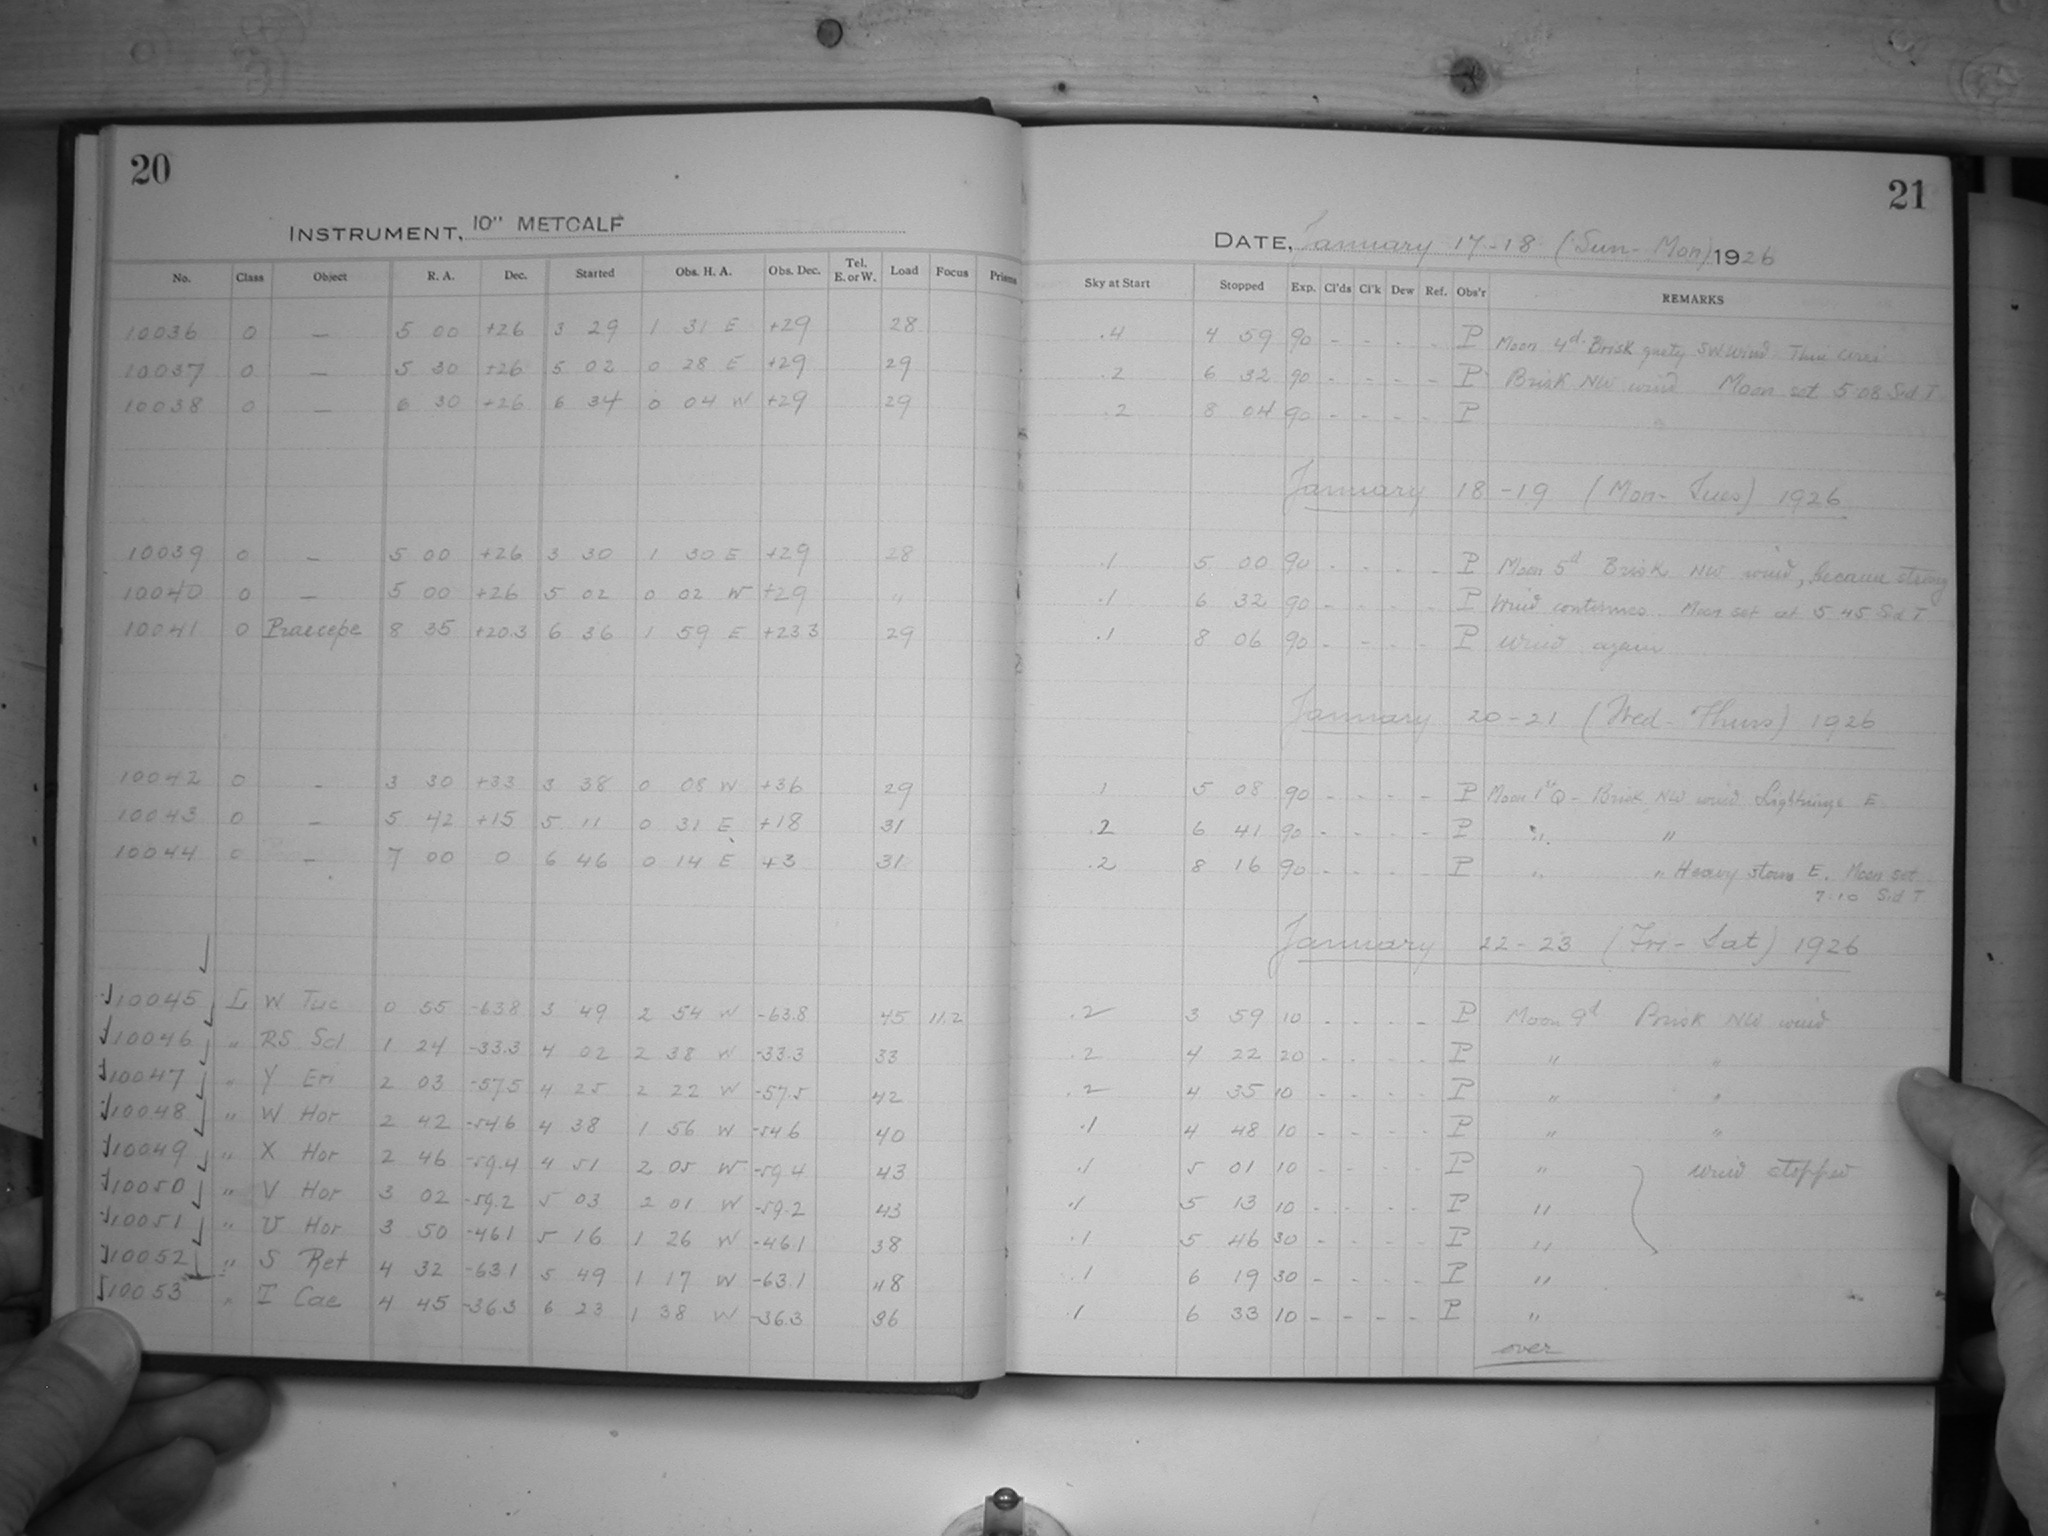 20
INSTRUMENT, 10" METCALF
No. Class Object R. A. Dec. Started Obs. H. A. Obs. Dec. Tel. E. or W. Load Focus Prisms
10036 0 — 5 00 +26 3 29 1 31 E +29 28
10037 0 — 5 30 +26 5 02 0 28 E +29 29
10038 0 — 6 30 +26 6 34 0 04 W +29 29
10039 0 — 5 00 +26 3 30 1 30 E +29 28
10040 0 — 5 00 +26 5 02 0 02 W +29 "
10041 0 Praecepe 8 35 +20.3 6 36 1 59 E +23.3 29
10042 0 - 3 30 +33 3 38 0 08 W +36 29
10043 0 — 5 42 +15 5 11 0 31 E +18 31
10044 0 — 7 00 0 6 46 0 14 E +3 31
10045 I W Tuc 0 55 -63.8 3 49 2 54 W -63.8 45 11.2
10046 " RS Scl 1 24 -33.3 4 02 2 38 W -33.3 33
10047 " Y Eri 2 03 -57.5 4 25 2 22 W -57.5 42
10048 " W Hor 2 42 -54.6 4 38 1 56 W -54.6 40
10049 " X Hor 2 46 -59.4 4 51 2 05 W -59.4 43
10050 " V Hor 3 02 -59.2 5 03 2 01 W -59.2 43
10051 " U Hor 3 50 -46.1 5 16 1 26 W -46.1 38
10052 " S Ret 4 32 -63.1 5 49 1 17 W -63.1 48
10053 " T Cae 4 45 -36.3 6 23 1 38 W -36.3 36
21
DATE, January 17-18 (Sun-Mon) 1926
Sky at Start Stopped Exp. Cl'ds Cl'k Dew Ref. Obs'r REMARKS
.4 4 59 90 - - - - P Moon 4d Brisk gusty SW wind. Thin cirri
.2 6 32 90 - - - - P Brisk NW wind Moon set 5 08 Sid T
.2 8 04 90 - - - - P
January 18-19 (Mon-Tues) 1926
.1 5 00 90 - - - - P Moon 5d Brisk NW wind, became strong
.1 6 32 90 - - - - P Wind continues. Moon set at 5 45 Sid T
.1 8 06 90 - - - - P Wind again
January 20-21 (Wed-Thurs) 1926
1 5 08 90 - - - - P Moon 1st Q - Brisk NW wind Lightnings E.
.2 6 41 90 - - - - P " "
.2 8 16 90 - - - - P " " Heavy storm E. Moon set
7:10 Sid T
January 22-23 (Fri-Sat) 1926
.2 3 59 10 - - - - P Moon 9d Brisk NW wind
.2 4 22 20 - - - - P " "
.2 4 35 10 - - - - P " "
.1 4 48 10 - - - - P " "
.1 5 01 10 - - - - P " wind stopped
.1 5 13 10 - - - - P "
.1 5 46 30 - - - - P "
.1 6 19 30 - - - - P "
.1 6 33 10 - - - - P "
over